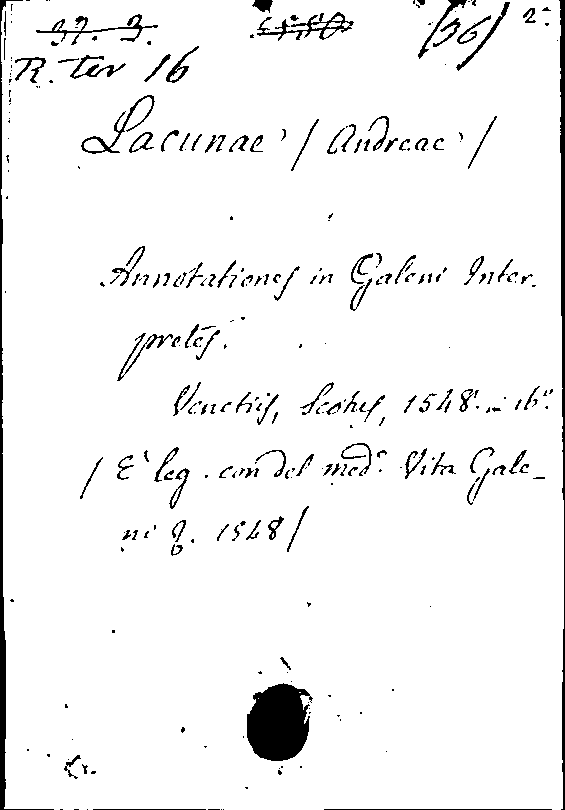 37. 3. (36) 2º
R. Ter 16
Lacunae / Andreae /
Annotationes in Galeni Inter-
pretes.
Venetiis, Scotus, 1548. in 16º.
/ È leg. con del medº. Vita Gale-
ni &. 1548 /